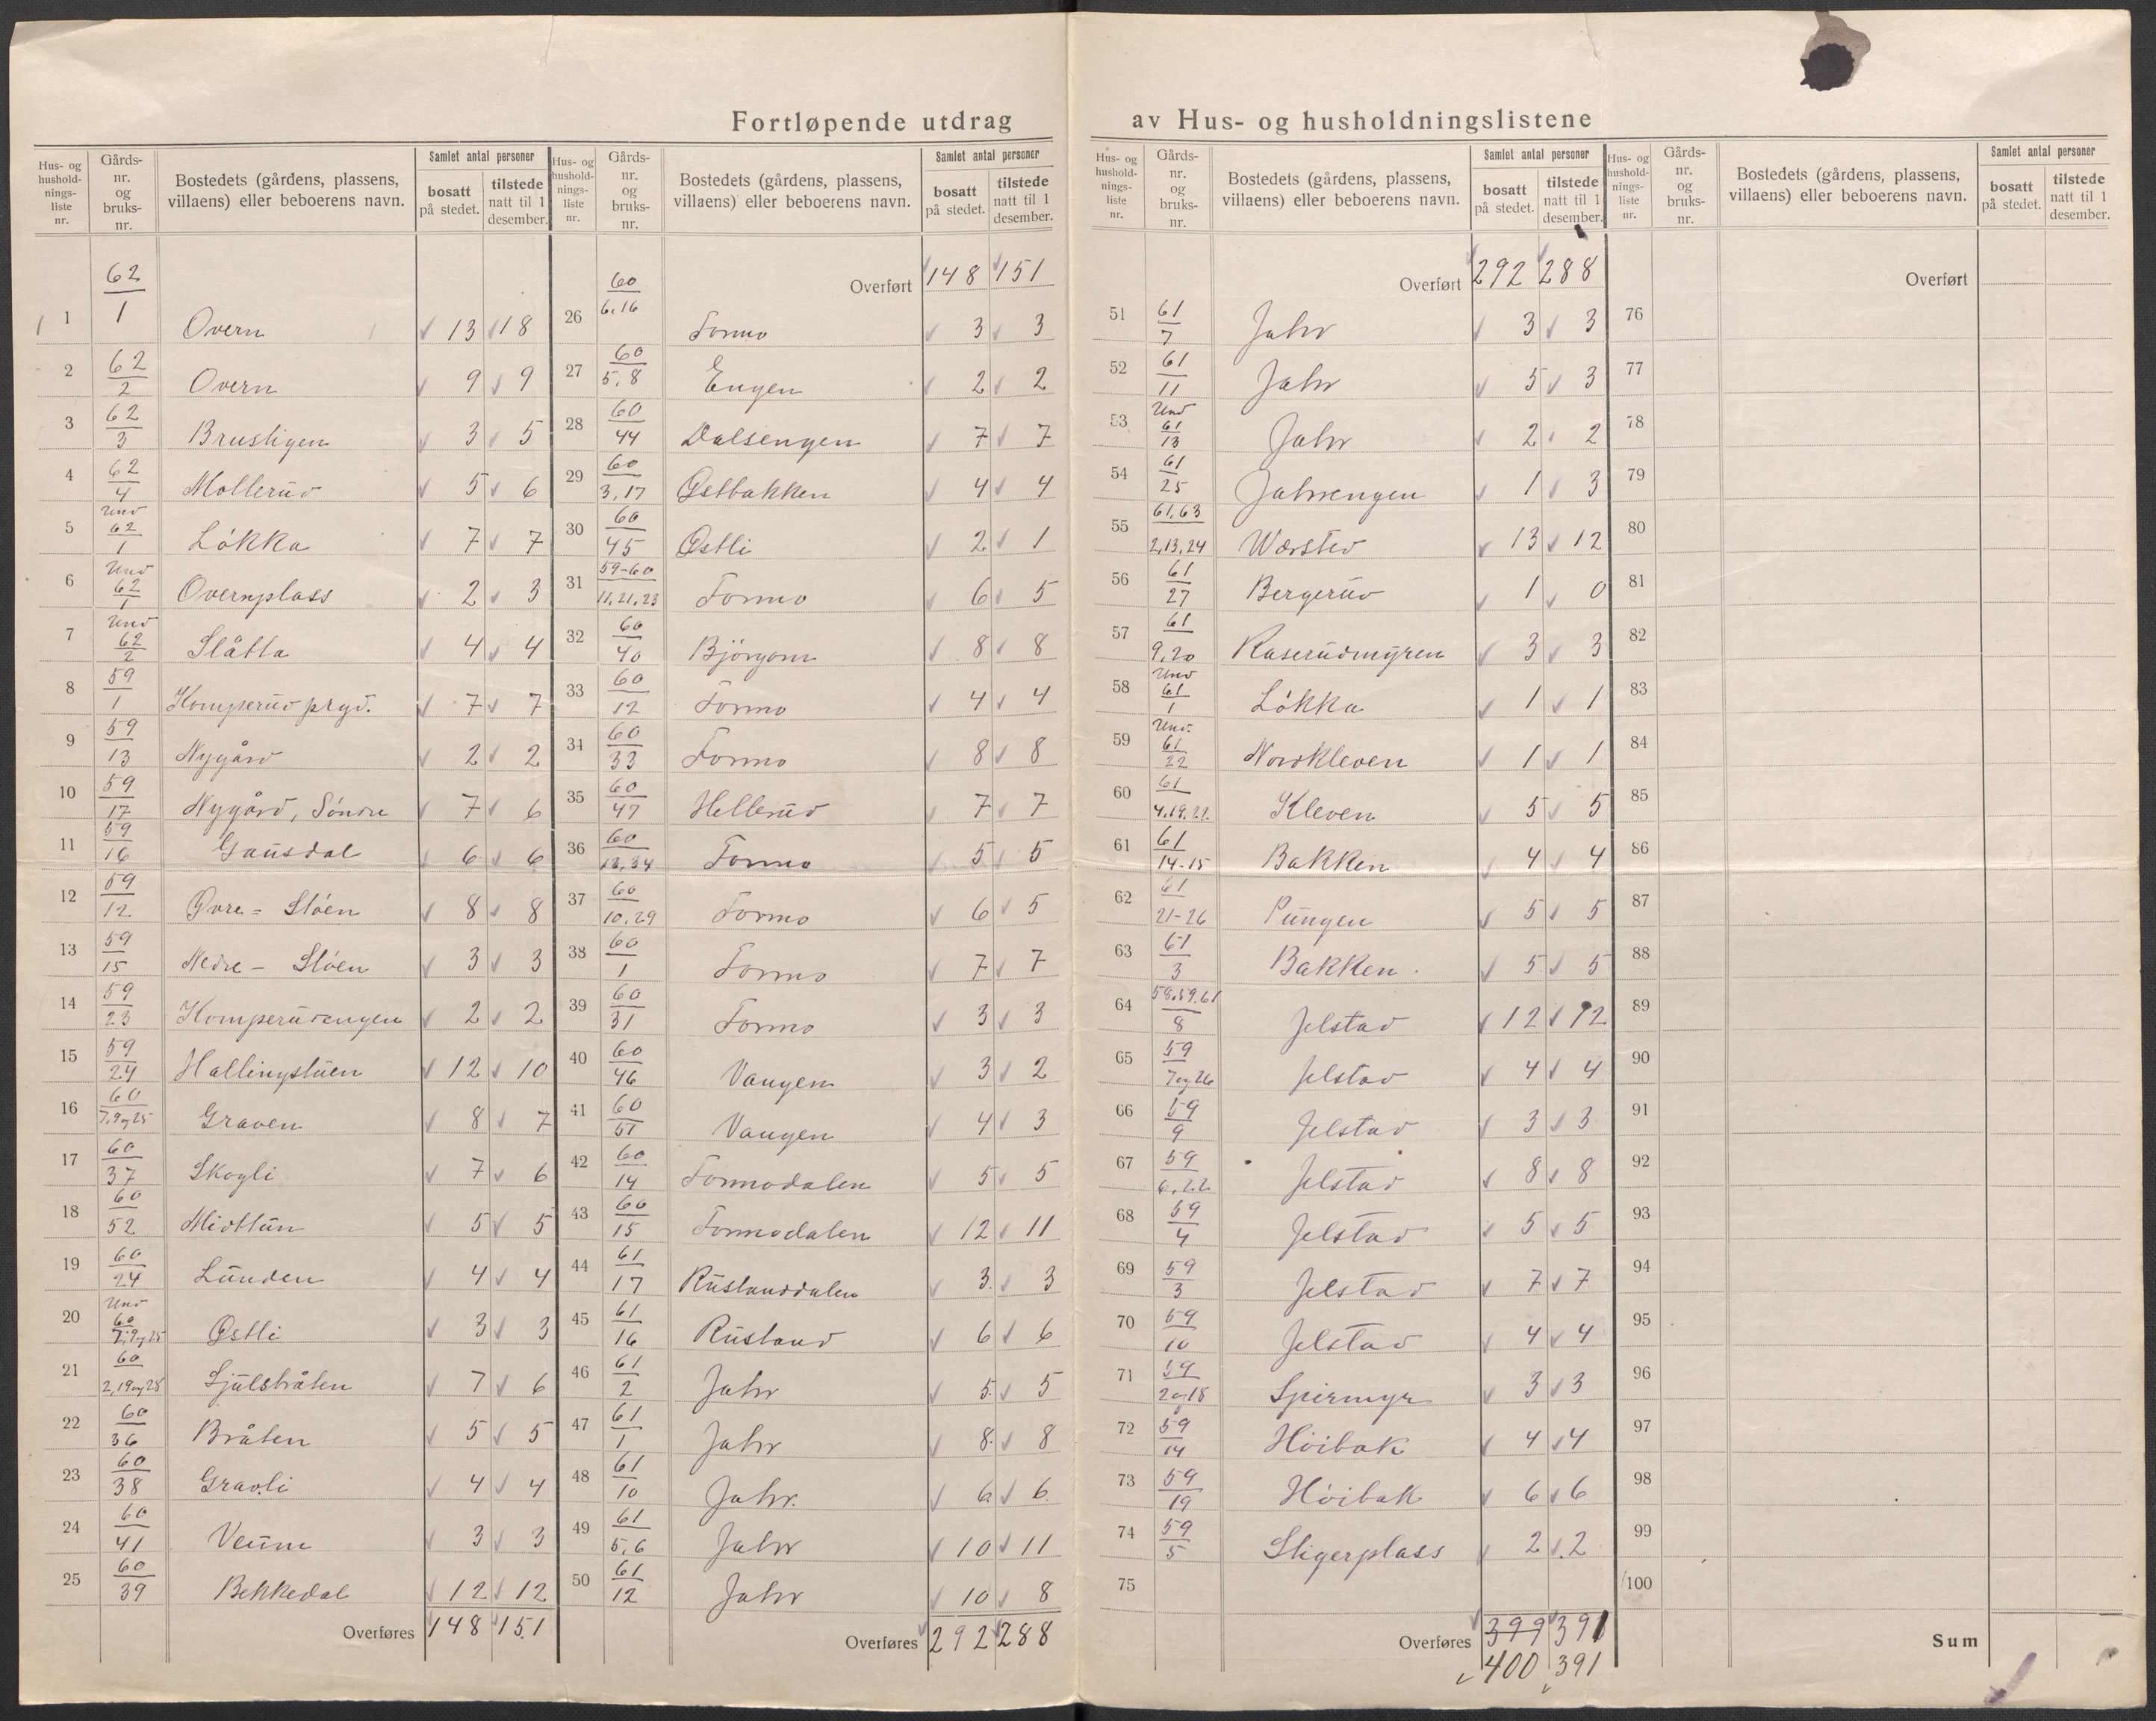 Fortløpende utdrag av Hus- og husholdningslistene
Hus- og husholdningsliste nr. | Gårdsnr. og bruksnr. | Bostedets (gårdens, plassens, villaens) eller beboerens navn. | Samlet antal personer bosatt på stedet. | tilstede natt til 1 desember.
1 62/1 Overn 13 18
2 62/2 Overn 9 9
3 62/3 Brustigen 3 5
4 62/4 Mollerud 5 6
5 Und 62/1 Løkka 7 7
6 Und 62/1 Overnplass 2 3
7 Und 62/2 Slåtta 4 4
8 59/1 Komperud prgd. 7 7
9 59/13 Nygård 2 2
10 59/17 Nygård, Søndre 7 6
11 59/16 Gausdal 6 6
12 59/12 Øvre = Støen 8 8
13 59/15 Nedre - Støen 3 3
14 59/23 Komperudengen 2 2
15 59/24 Hallingstuen 12 10
16 60/7,9og25 Graven 8 7
17 60/37 Skogli 7 6
18 60/52 Midttun 5 5
19 60/24 Lunden 4 4
20 Und 60/7,9og25 Østli 3 3
21 60/2,19og28 Sjulsbråten 7 6
22 60/36 Bråten 5 5
23 60/38 Gravli 4 4
24 60/41 Veum 3 3
25 60/39 Bekkedal 12 12
Overføres 148 151
Hus- og husholdningsliste nr. | Gårdsnr. og bruksnr. | Bostedets (gårdens, plassens, villaens) eller beboerens navn. | Samlet antal personer bosatt på stedet. | tilstede natt til 1 desember.
Overført 148 151
26 60/6,16 Formo 3 3
27 60/5,8 Engen 2 2
28 60/44 Dalsengen 7 7
29 60/3,17 Østbakken 4 4
30 60/45 Østli 2 1
31 59-60/11,21,23 Formo 6 5
32 60/40 Bjørgom 8 8
33 60/12 Formo 4 4
34 60/33 Formo 8 8
35 60/47 Hellerud 7 7
36 60/13,34 Formo 5 5
37 60/10,29 Formo 6 5
38 60/1 Formo 7 7
39 60/31 Formo 3 3
40 60/46 Vangen 3 2
41 60/51 Vangen 4 3
42 60/14 Formodalen 5 5
43 60/15 Formodalen 12 11
44 61/17 Rustanddalen 3 3
45 61/16 Rustand 6 6
46 61/2 Jahr 5 5
47 61/1 Jahr 8 8
48 61/10 Jahr. 6 6
49 61/5,6 Jahr 10 11
50 61/12 Jahr 10 8
Overføres 292 288
Hus- og husholdningsliste nr. | Gårdsnr. og bruksnr. | Bostedets (gårdens, plassens, villaens) eller beboerens navn. | Samlet antal personer bosatt på stedet. | tilstede natt til 1 desember.
Overført 292 288
51 61/7 Jahr 3 3
52 61/11 Jahr 5 3
53 Und 61/13 Jahr 2 2
54 61/25 Jahrengen 1 3
55 61,63/2,13,24 Wærsted 13 12
56 61/27 Bergerud 1 0
57 61/9,20 Raserudmyren 3 3
58 Und 61/1 Løkka 1 1
59 Und. 61/22 Nordkleven 1 1
60 61/4,19,22 Kleven 5 5
61 61/14-15 Bakken 4 4
62 61/21-26 Pungen 5 5
63 61/3 Bakken. 5 5
64 58,59,61/8 Jelstad 12 12
65 59/7og26 Jelstad 4 4
66 59/9 Jelstad 3 3
67 59/6,22 Jelstad 8 8
68 59/4 Jelstad 5 5
69 59/3 Jelstad 7 7
70 59/10 Jelstad 4 4
71 59/2og18 Spirmyr 3 3
72 59/14 Høibak 4 4
73 59/19 Høibak 6 6
74 59/5 Stigerplass 2 2
75
Overføres 399 391
400 391
Hus- og husholdningsliste nr. | Gårdsnr. og bruksnr. | Bostedets (gårdens, plassens, villaens) eller beboerens navn. | Samlet antal personer bosatt på stedet. | tilstede natt til 1 desember.
Overført
76
77
78
79
80
81
82
83
84
85
86
87
88
89
90
91
92
93
94
95
96
97
98
99
100
Sum